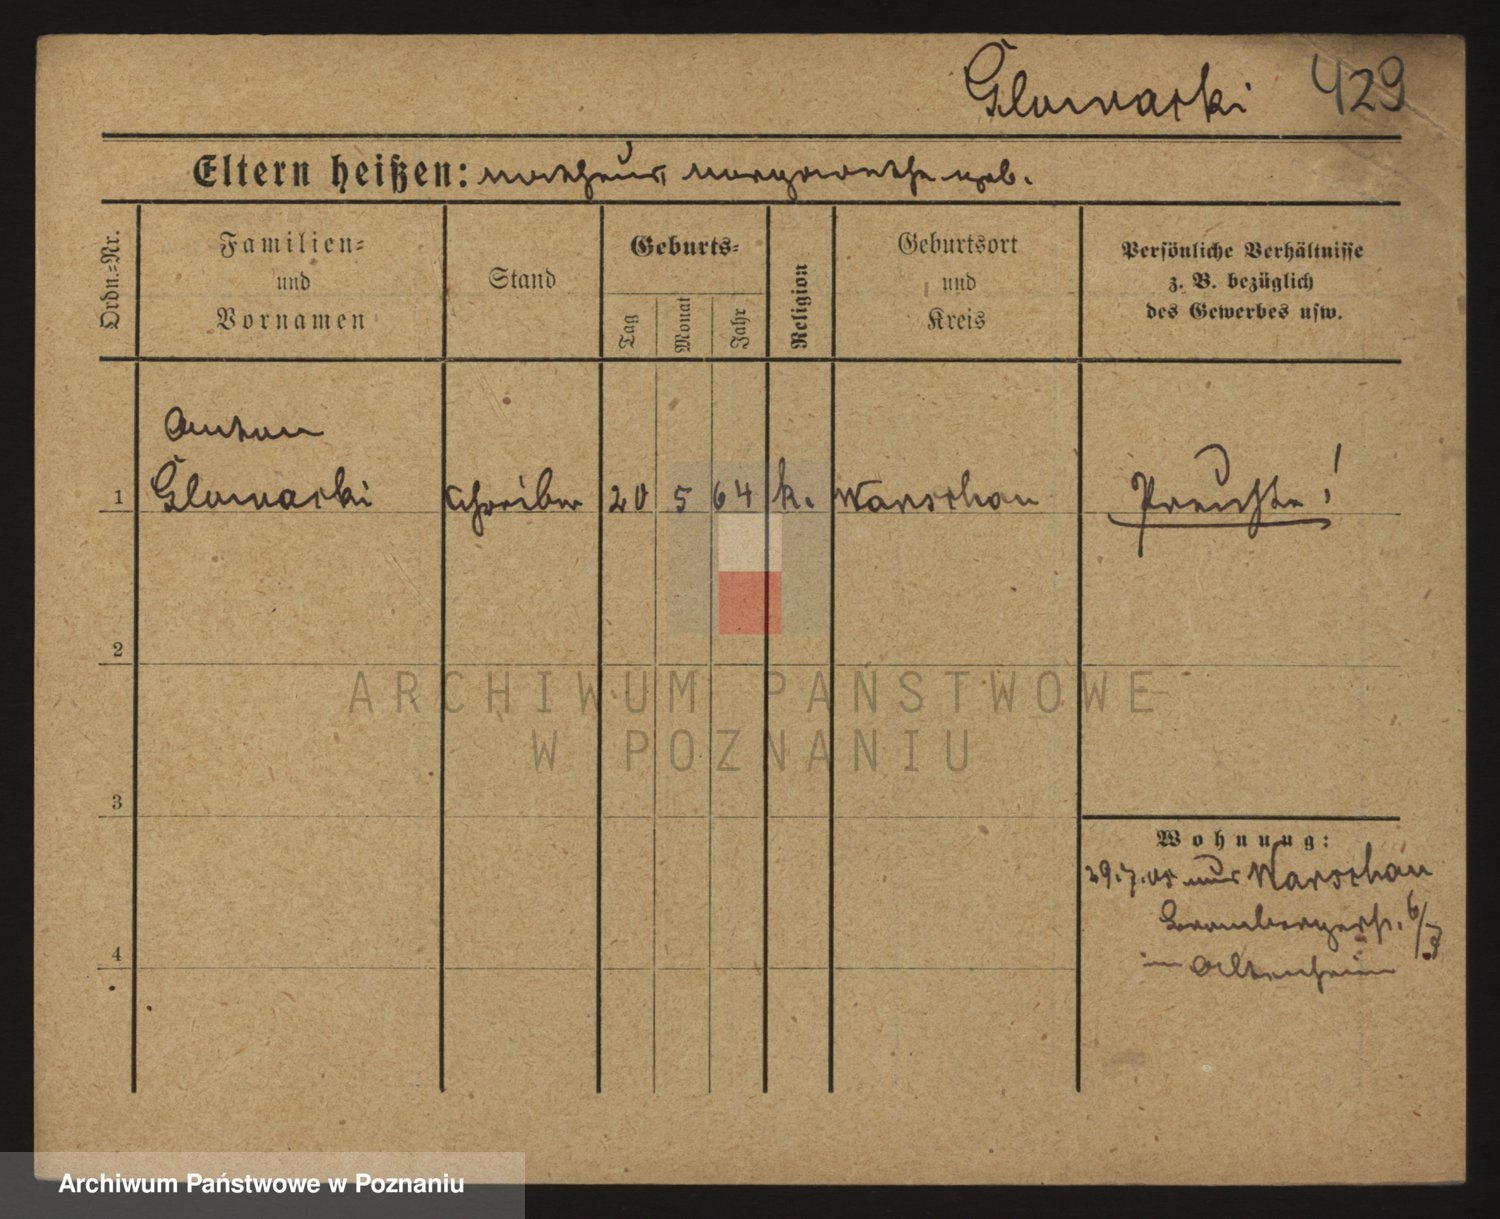 Glowacki 429
Eltern heißen: Matheus, Margarethe geb.
Ordn.=Nr.
Familien=
und
Vornamen
Stand
Geburts=
Tag
Monat
Jahr
Religion
Geburtsort
und
Kreis
Persönliche Verhältnisse
z. B. bezüglich
des Gewerbes usw.
Anton
1 Glowacki Schreiber 20 5 64 k. Warschau Preuße!
2
3
4
Wohnung:
29.7.05 aus Warschau
Brombergerstr.
im Altenheim
ARCHIWUM PAŃSTWOWE
W POZNANIU
Archiwum Państwowe w Poznaniu